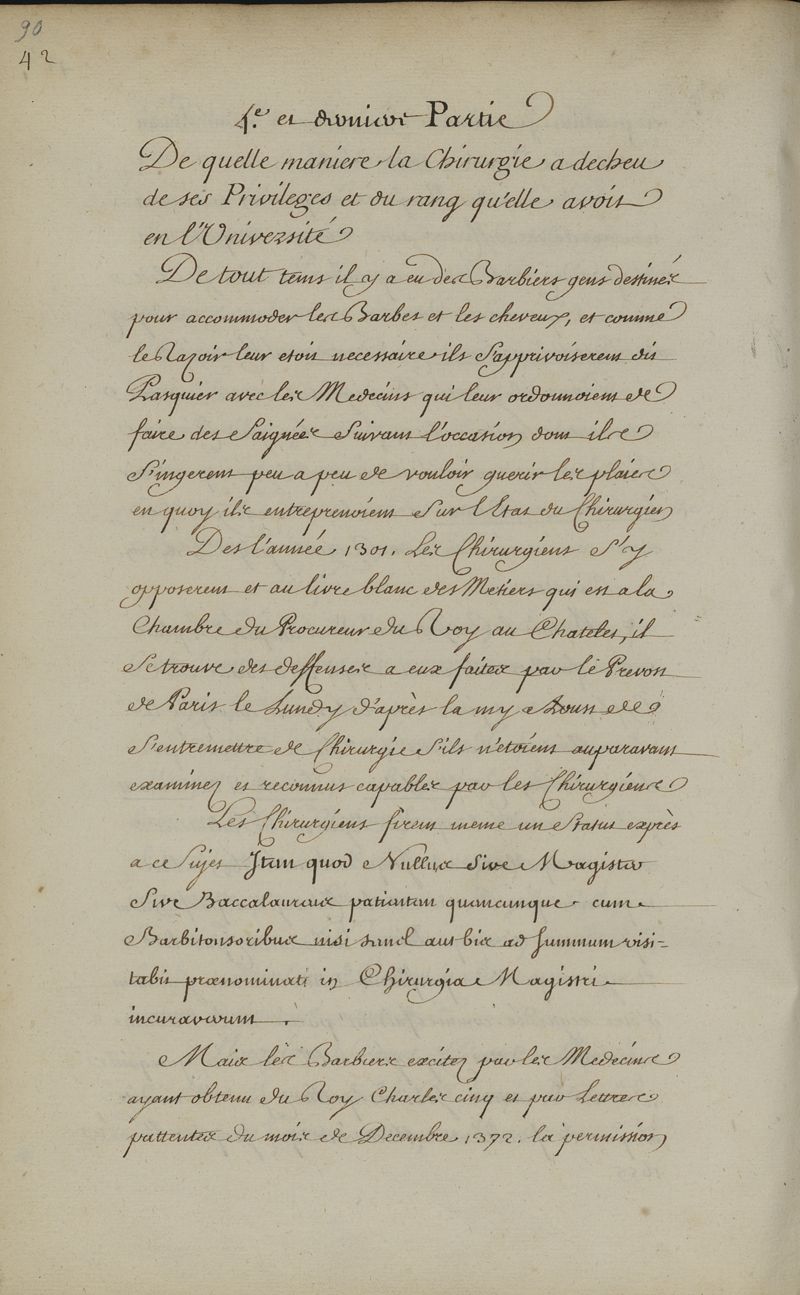 90
42
4.e et derniere Partie
De quelle maniere la Chirurgie a decheu
de ses Privileges et du rang qu'elle avoit
en l'Université
De tout tems il y a eu des Barbiers gens destinés
pour accommoder les Barbes et les cheveux, et comme
le Razoir leur etoit necessaire ils s'apprivoiserent dit
Pasquier avec les Medecins qui leur ordonnoient de
faire des Saignées Suivant l'occasion dont ils
S'ingerent peu a peu de vouloir guerir les plaies
en quoy ils entreprenoient Sur l'Etat du Chirurgien
Des l'année 1301. Les Chirurgiens S'y
opposerent et au livre blanc des Metiers qui est a la
Chambre du Procureur du Roy au Chatelet, il
Se trouve des deffenses a eux faites par le Prevost
de Paris le Lundy d'après la my Aoust de
S'entremettre de Chirurgie S'ils n'etoient auparavant
examinez et reconnus capables par les Chirurgiens
Les Chirurgiens firent meme un Statut exprès
a ce Sujet Item quod Nullus Sive Magister
Sive Baccalaureus patientem quemcunque cum
Barbitonsoribus nisi semel aut bis ad summum visi-
tabit prænominati in Chirurgia Magistri
incuraverunt.
Mais les Barbiers excitez par les Medecins
ayant obtenu du Roy Charles cinq et par lettres
pattentes du mois de Decembre 1372. la permission